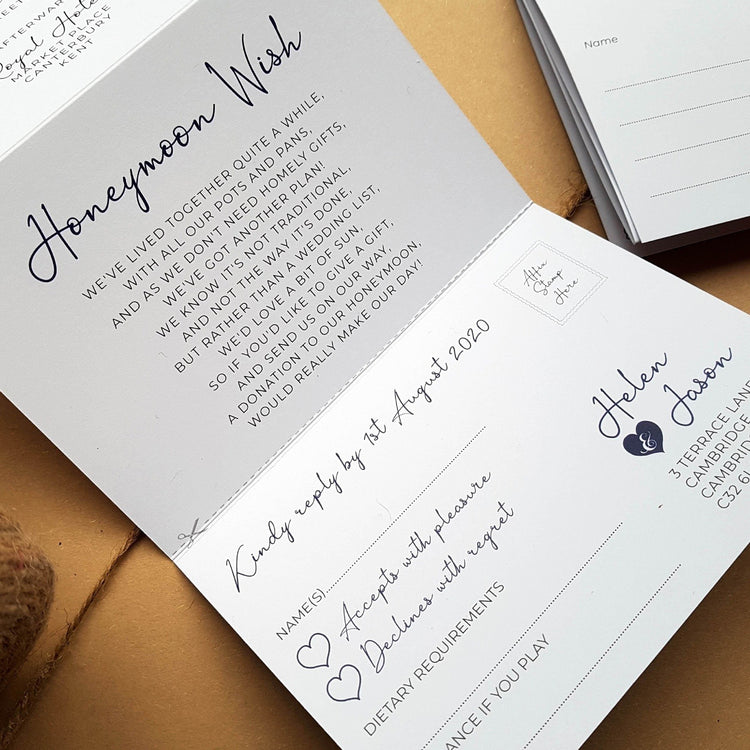 AFTERWAR
Royal Hote
MARKET PLACE
CANTERBURY
KENT
Honeymoon Wish
WE'VE LIVED TOGETHER QUITE A WHILE,
WITH ALL OUR POTS AND PANS,
AND AS WE DON'T NEED HOMELY GIFTS,
WE'VE GOT ANOTHER PLAN!
WE KNOW IT'S NOT TRADITIONAL,
AND NOT THE WAY IT'S DONE,
BUT RATHER THAN A WEDDING LIST,
WE'D LOVE A BIT OF SUN,
SO IF YOU'D LIKE TO GIVE A GIFT,
AND SEND US ON OUR WAY,
A DONATION TO OUR HONEYMOON,
WOULD REALLY MAKE OUR DAY!
Kindly reply by 1st August 2020
NAME(S)
Accepts with pleasure
Declines with regret
DIETARY REQUIREMENTS
ANCE IF YOU PLAY
Affix
Stamp
Here
Helen
& Jason
3 TERRACE LANE
CAMBRIDGE
CAMBRID
C32 6L
Name